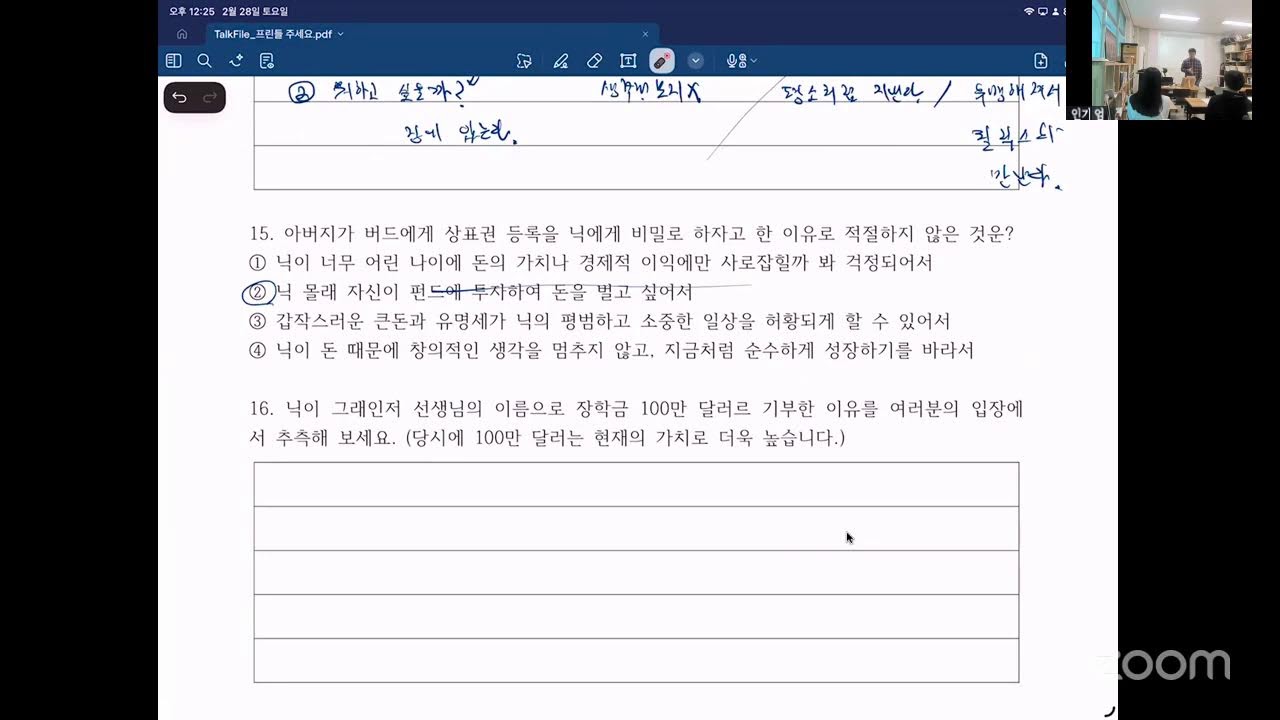 오후 12:25 2월 28일 토요일
TalkFile_프린들 주세요.pdf
② 싶을까?
잡지 않는다.
15. 아버지가 버드에게 상표권 등록을 닉에게 비밀로 하자고 한 이유로 적절하지 않은 것운?
① 닉이 너무 어린 나이에 돈의 가치나 경제적 이익에만 사로잡힐까 봐 걱정되어서
② 닉 몰래 자신이 펀드에 투자하여 돈을 벌고 싶어서
③ 갑작스러운 큰돈과 유명세가 닉의 평범하고 소중한 일상을 허황되게 할 수 있어서
④ 닉이 돈 때문에 창의적인 생각을 멈추지 않고, 지금처럼 순수하게 성장하기를 바라서
16. 닉이 그래인저 선생님의 이름으로 장학금 100만 달러르 기부한 이유를 여러분의 입장에
서 추측해 보세요. (당시에 100만 달러는 현재의 가치로 더욱 높습니다.)
zoom